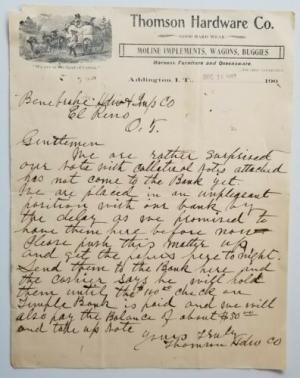 Thomson Hardware Co.
GOOD HARD WEAR
MOLINE IMPLEMENTS, WAGONS, BUGGIES
Harness, Furniture and Queensware.
Addington, I. T., 190
Benebrake Hdw & Imp Co
El Reno
O. T.
Gentlemen
We are rather surprised
our note with collateral notes attached
has not come to the Bank yet.
We are placed in an unpleasant
position with our bank by
the delay as we promised to
have them here before now
Please push this matter up
and get the papers here to night.
Send them to the Bank here and
the Cashier says he will hold
them until the check on
Temple Bank is paid and we will
also pay the Balance of about $50
and take up note
Yours Truly
Thomson Hdw Co